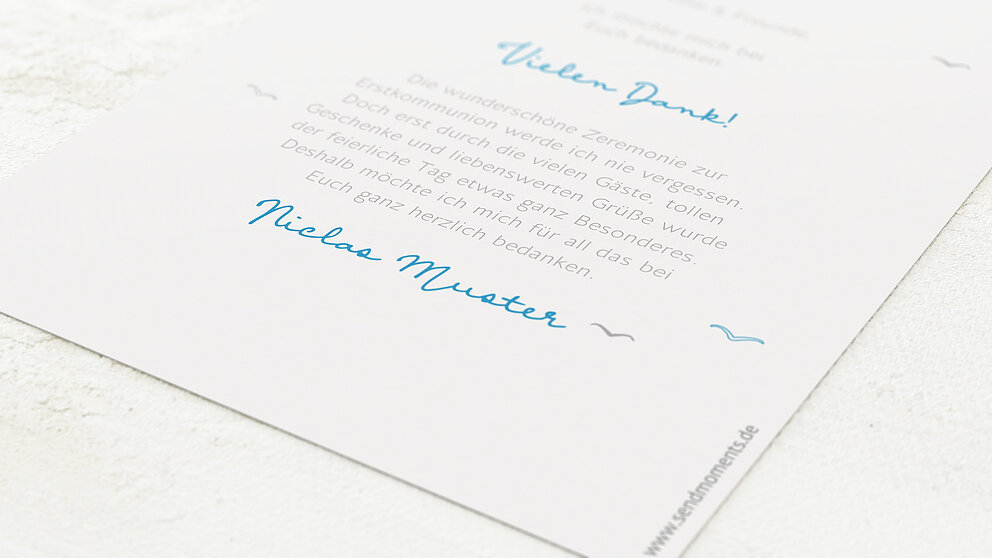 ich möchte mich bei
Euch bedanken.
Vielen Dank!
Die wunderschöne Zeremonie zur
Erstkommunion werde ich nie vergessen.
Doch erst durch die vielen Gäste, tollen
Geschenke und liebenswerten Grüße wurde
der feierliche Tag etwas ganz Besonderes.
Deshalb möchte ich mich für all das bei
Euch ganz herzlich bedanken.
Niclas Muster
www.sendmoments.de